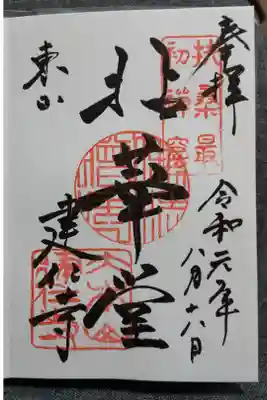 奉拝
扶桑最
初禅窟
令和元年
八月十八日
拈華堂
東山
建仁寺